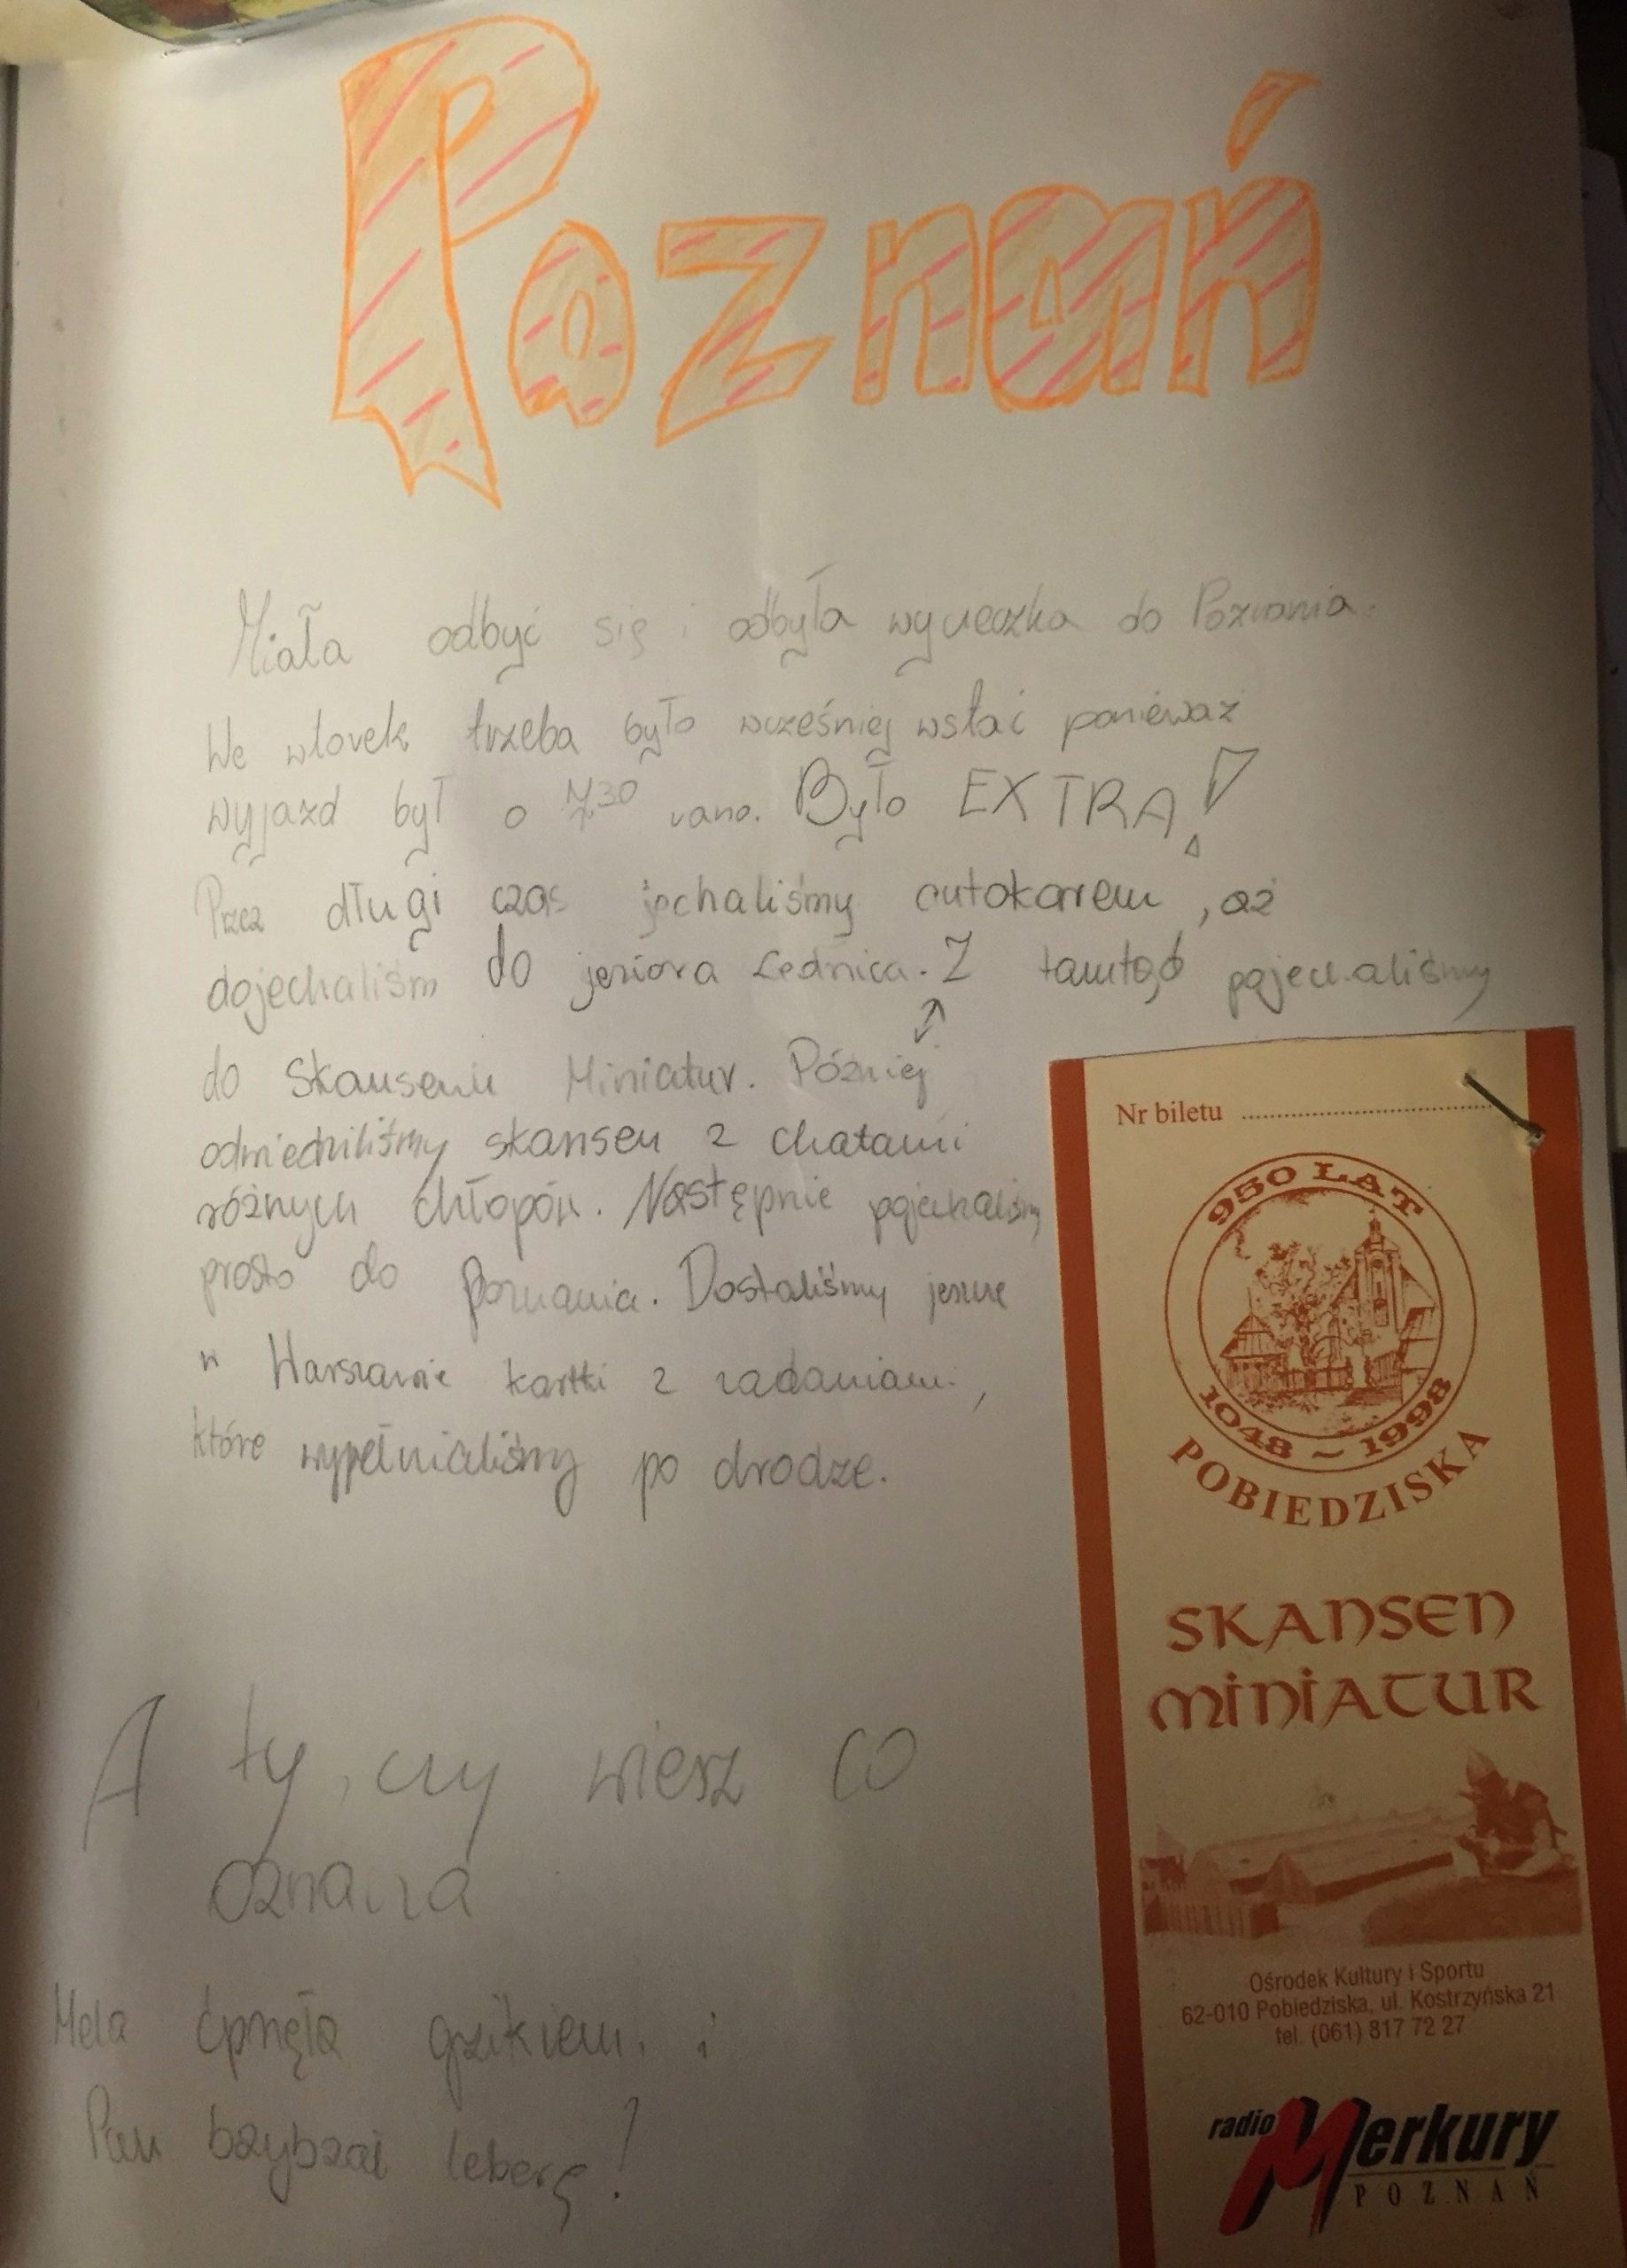 Poznań
Miała odbyć się i odbyła wycieczka do Poznania.
We wtorek trzeba było wcześniej wstać ponieważ
wyjazd był o 7:30 rano. Było EXTRA!
Przez długi czas jechaliśmy autokarem, aż
dojechaliśm do jeziora Lednica. Z tamtąd pojechaliśmy
do Skansenu Miniatur. Później
odwiedziliśmy skansen z chatami
różnych chłopów. Następnie pojechaliśmy
prosto do Poznania. Dostaliśmy jeszcze
w Warszawie kartki z zadaniami,
które wypełnialiśmy po drodze.
A ty, czy wiesz co
oznacza
Mela ćpnęła gzikiem. i
Pan bzybzał leberę!
Nr biletu
950 LAT
1048 ~ 1998
POBIEDZISKA
SKANSEN
MINIATUR
Ośrodek Kultury i Sportu
62-010 Pobiedziska, ul. Kostrzyńska 21
tel. (061) 817 72 27
radio Merkury
POZNAŃ